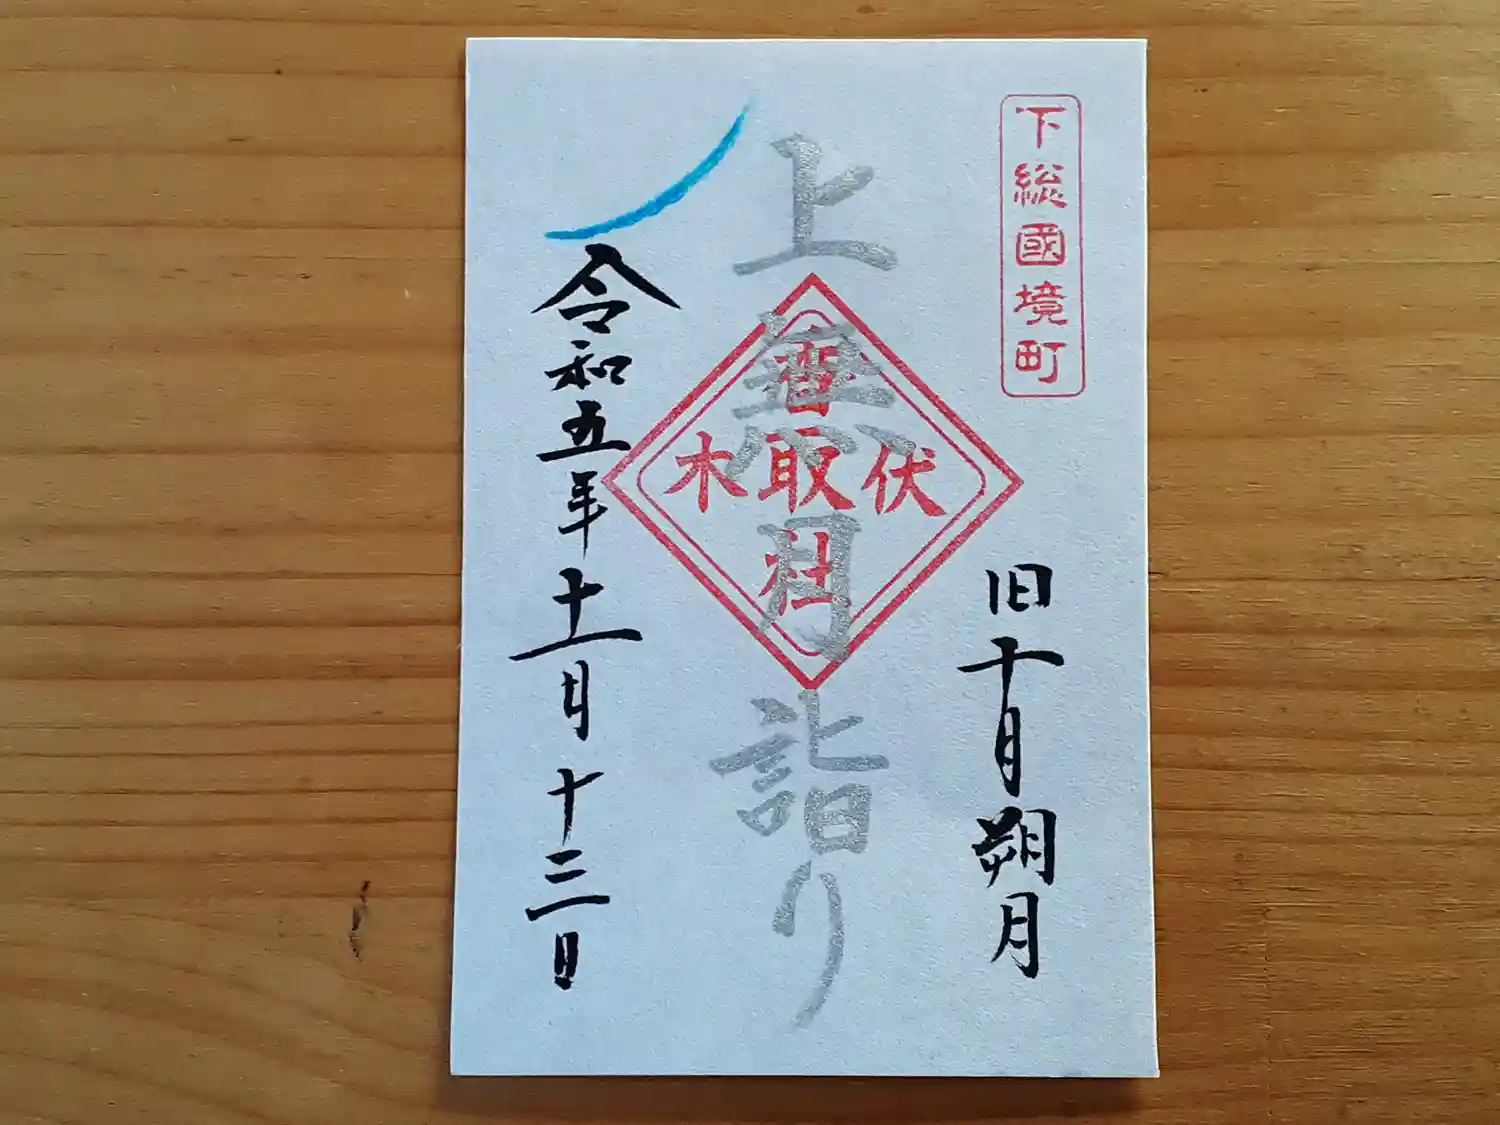 下総國境町
旧十月朔月
上無月詣り
香
伏取木
社
令和五年十一月十三日